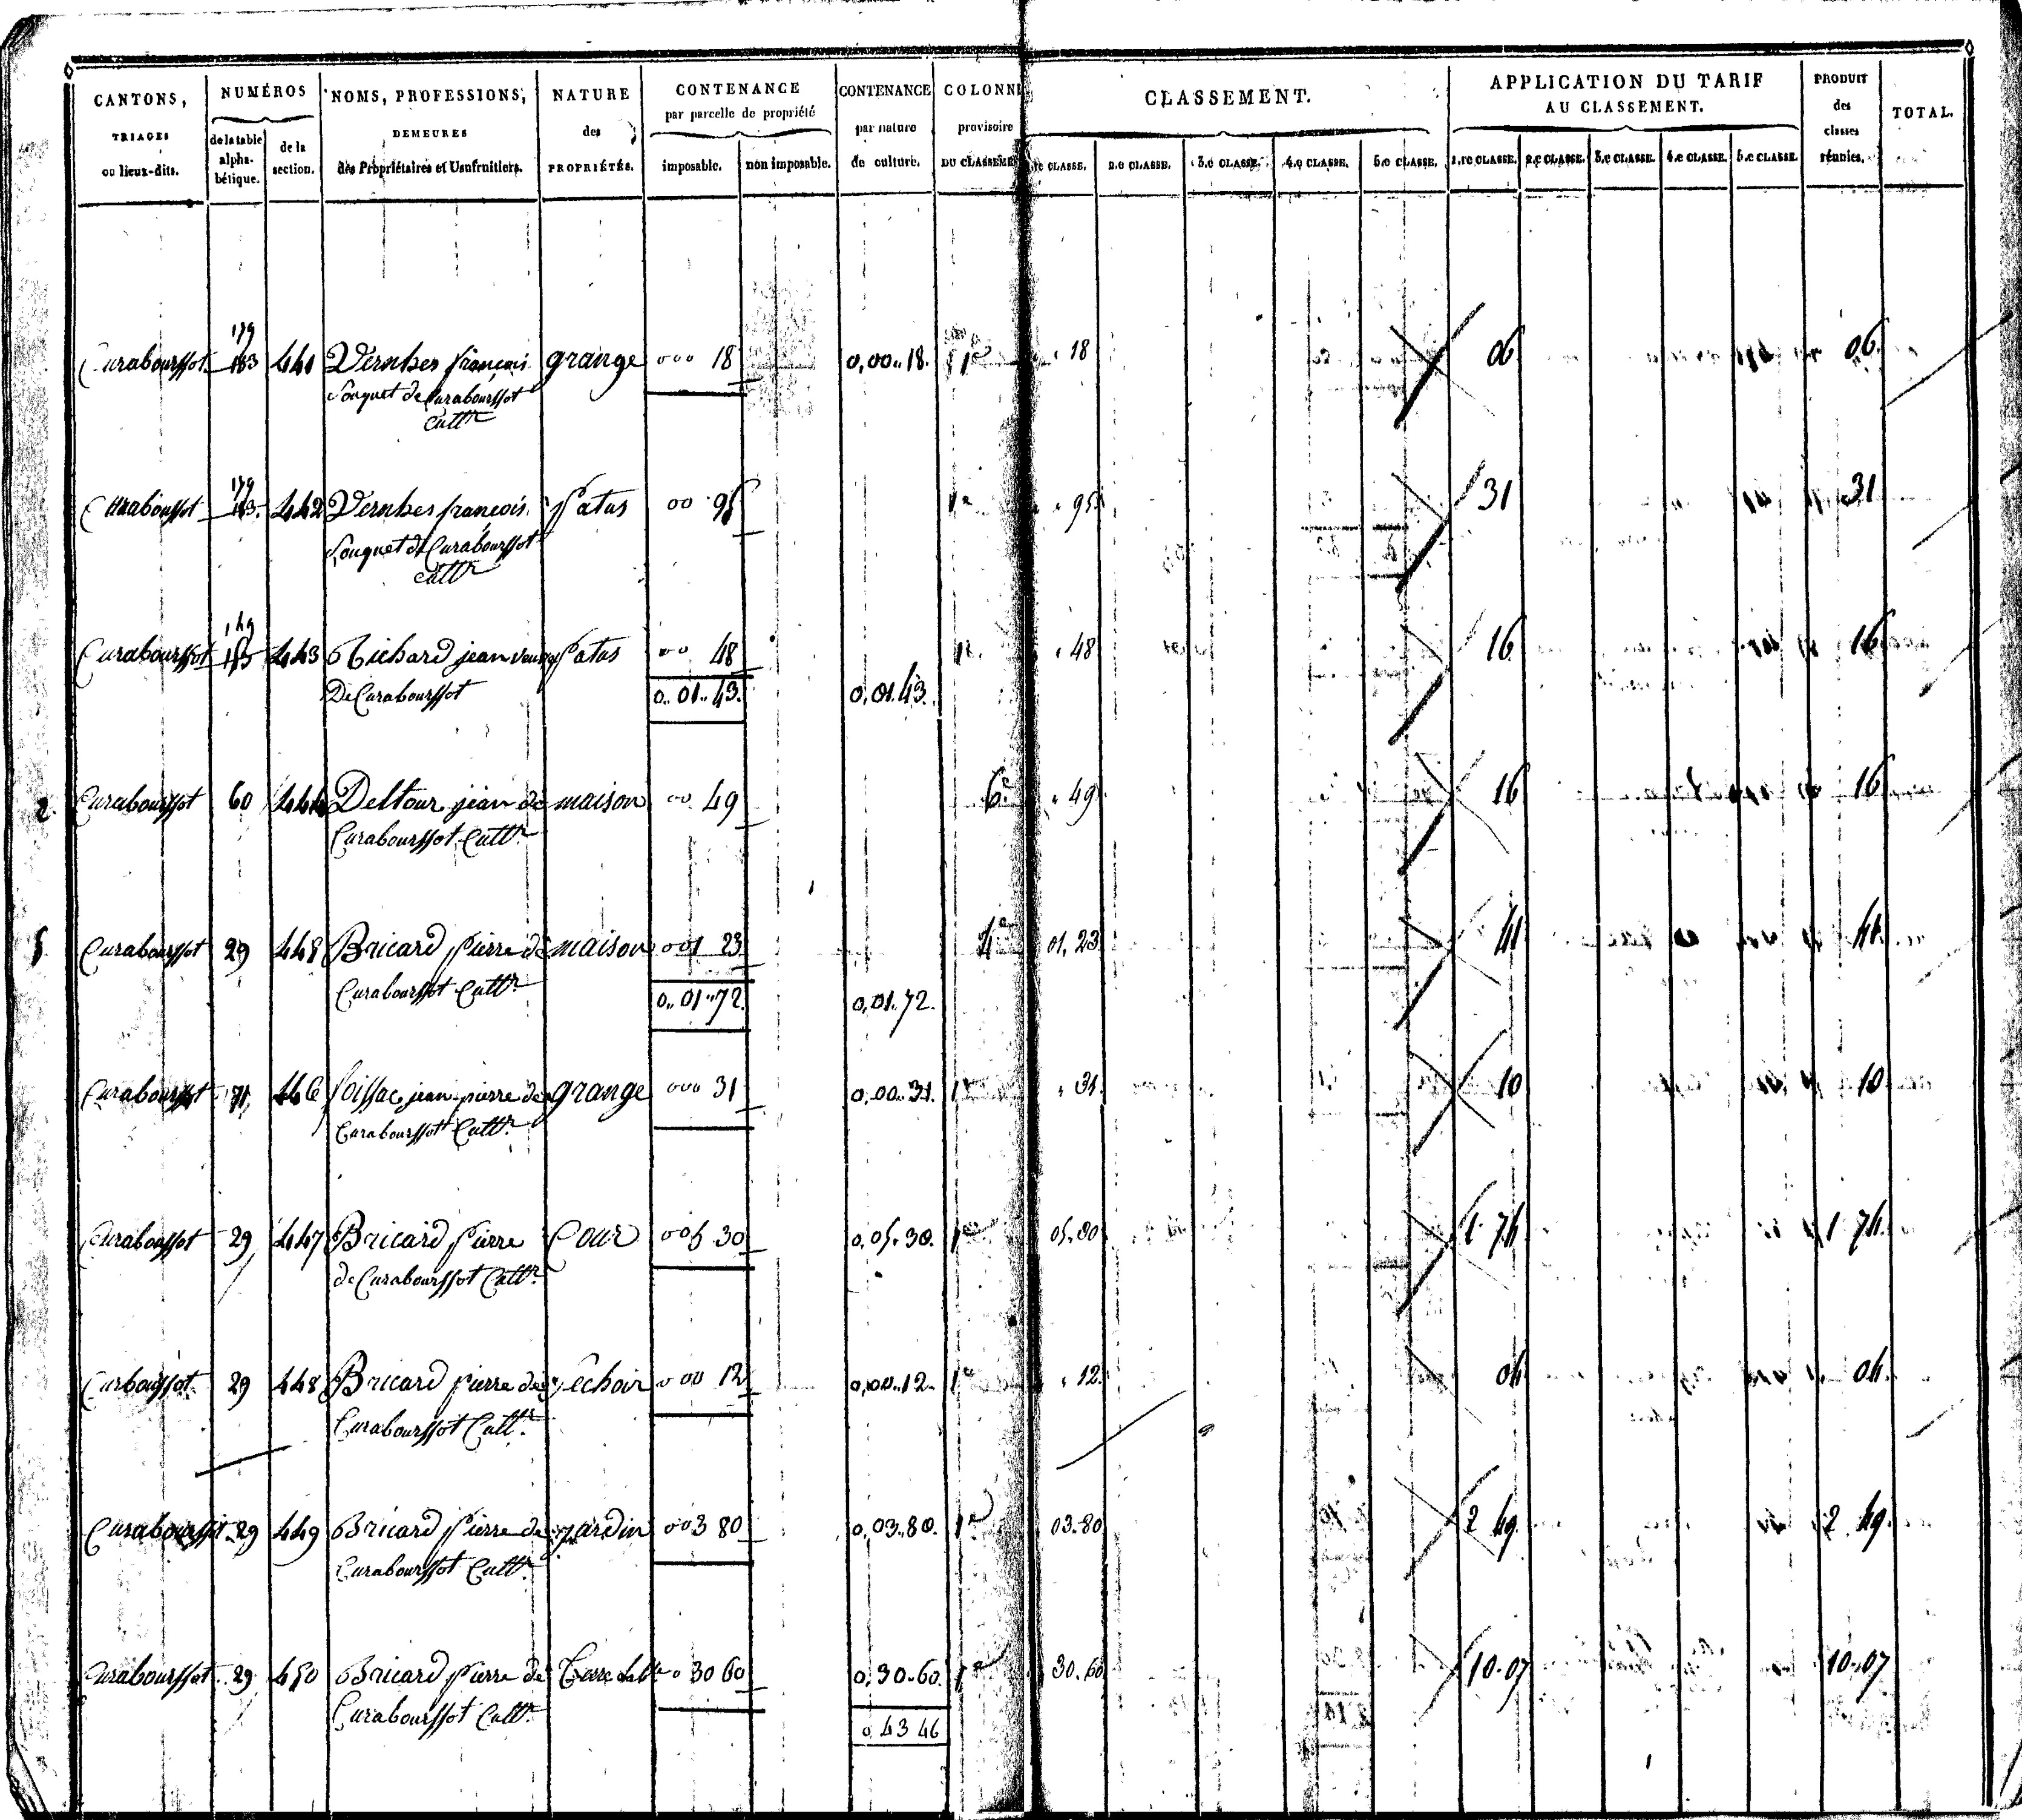 CANTONS, TRIAGES ou lieux-dits. NUMÉROS de la table alphabétique. de la section. NOMS, PROFESSIONS, DEMEURES des Propriétaires et Usufruitiers. NATURE des PROPRIÉTÉS. CONTENANCE par parcelle de propriété imposable. non imposable. CONTENANCE par nature de culture. COLONNE provisoire DU CLASSEMENT
CLASSEMENT. 1.re CLASSE. 2.e CLASSE. 3.e CLASSE. 4.e CLASSE. 5.e CLASSE. APPLICATION DU TARIF AU CLASSEMENT. 1.re CLASSE. 2.e CLASSE. 3.e CLASSE. 4.e CLASSE. 5.e CLASSE. PRODUIT des classes réunies. TOTAL.
179
Curabourssot 183 441 françois grange 000 18 0,00..18. 1re 18 06 06.
Souquet de Curabourssot
Cultr
179
Curaboursot 183. 442 françois Patus 00 95 1re 95 31 31
Souquet de Curabourssot
Cultr
149
Curaboursot 443 Richard jean Patus 00 48 1re 48 16 16
De Curaboursot 0..01..43. 0,01.43.
2. Curaboursot 60 444 Deltour jean de maison 00 49 6e 49 16 16
Curaboursot Cultr
Curaboursot 29 Bricard Pierre de maison 001 23 01,23 41 41.
Curaboursot Cultr
0..01..72. 0,01..72.
Curaboursot 446 jean pierre de grange 000 31 0,00..31. 1re 31 10 10
Curaboursot Cultr
Curaboursot 29 447 Bricard Pierre Cour 005 30 0,05.30. 1re 05.30 1 74 1 74.
de Curaboursot Cultr
Curboursot 29 448 Bricard Pierre de séchoir 000 12 0,00..12. 1re 12. 04 04.
Curaboursot Cultr
Curaboursot 29 449 Bricard Pierre de jardin 003 80 0,03..80. 1re 03.80 2 49. 2 49.
Curaboursot Cultr
Curaboursot 29 450 Bricard Pierre de Terre lable 0 30 60 0,30..60. 1re 30.60 10.07 10.07
Curaboursot Cultr
0 43 46